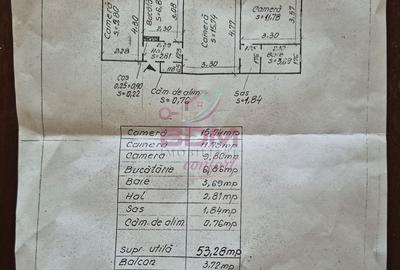 Cameră
S=9.80
4,30
Bucăt
S=6,8
3,08
2,30
Cameră
S=15,74
4,77
Cameră
S=11,78
3,57
3,30
2,28
Hal
S=2,81
3,30
Baie
S=3,69
Coș
0,25×0,90
S=0,22
Căm. de alim
S=0,76
Sas
S=1,84
Cameră 15,74mp
Cameră 11,78mp
Cameră 9,80mp
Bucătărie 6,86mp
Baie 3,69mp
Hal 2,81mp
Sas 1,84mp
Căm. de alim 0,76mp
Supr. utilă 53,28mp
Balcon 3,72mp